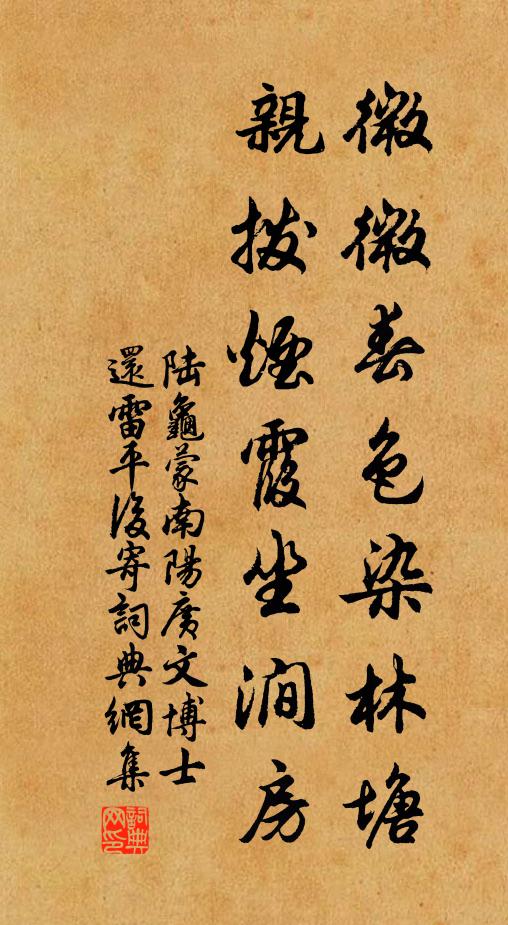 微微春色染林塘
親拨煙霞坐澗房
陆龜蒙南陽廣文博士
還雷平後寄詞典網集
詞典网印